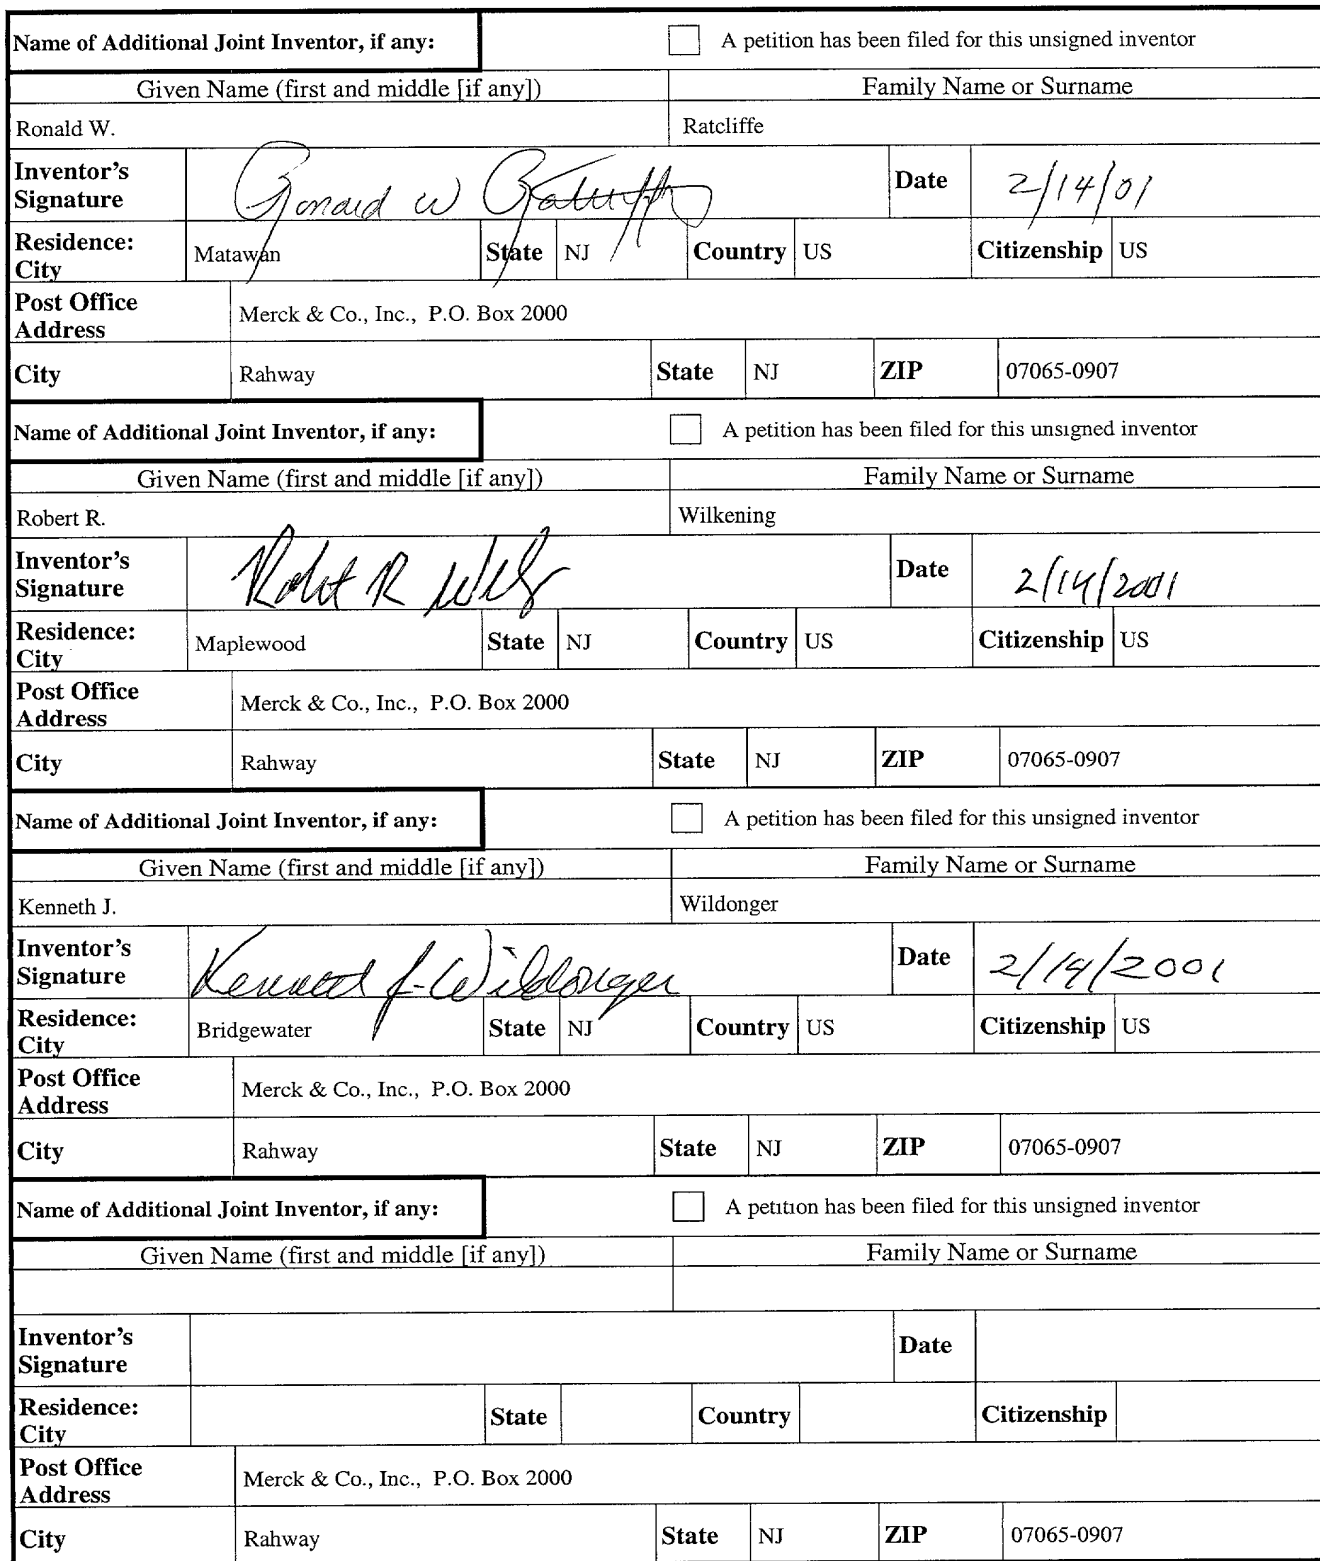 Name of Additional Joint Inventor, if any: A petition has been filed for this unsigned inventor
Given Name (first and middle [if any]) Family Name or Surname
Ronald W. Ratcliffe
Inventor's Signature Ronald W Ratcliffe Date 2/14/01
Residence: City Matawan State NJ Country US Citizenship US
Post Office Address Merck & Co., Inc., P.O. Box 2000
City Rahway State NJ ZIP 07065-0907
Name of Additional Joint Inventor, if any: A petition has been filed for this unsigned inventor
Given Name (first and middle [if any]) Family Name or Surname
Robert R. Wilkening
Inventor's Signature Robert R Date 2/14/2001
Residence: City Maplewood State NJ Country US Citizenship US
Post Office Address Merck & Co., Inc., P.O. Box 2000
City Rahway State NJ ZIP 07065-0907
Name of Additional Joint Inventor, if any: A petition has been filed for this unsigned inventor
Given Name (first and middle [if any]) Family Name or Surname
Kenneth J. Wildonger
Inventor's Signature Kenneth J. Wildonger Date 2/14/2001
Residence: City Bridgewater State NJ Country US Citizenship US
Post Office Address Merck & Co., Inc., P.O. Box 2000
City Rahway State NJ ZIP 07065-0907
Name of Additional Joint Inventor, if any: A petition has been filed for this unsigned inventor
Given Name (first and middle [if any]) Family Name or Surname
Inventor's Signature Date
Residence: City State Country Citizenship
Post Office Address Merck & Co., Inc., P.O. Box 2000
City Rahway State NJ ZIP 07065-0907